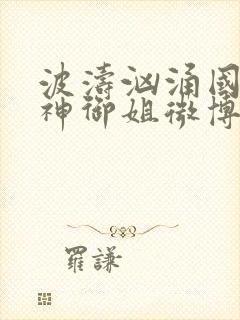 波濤洶涌國
神御姐微博
羅謙